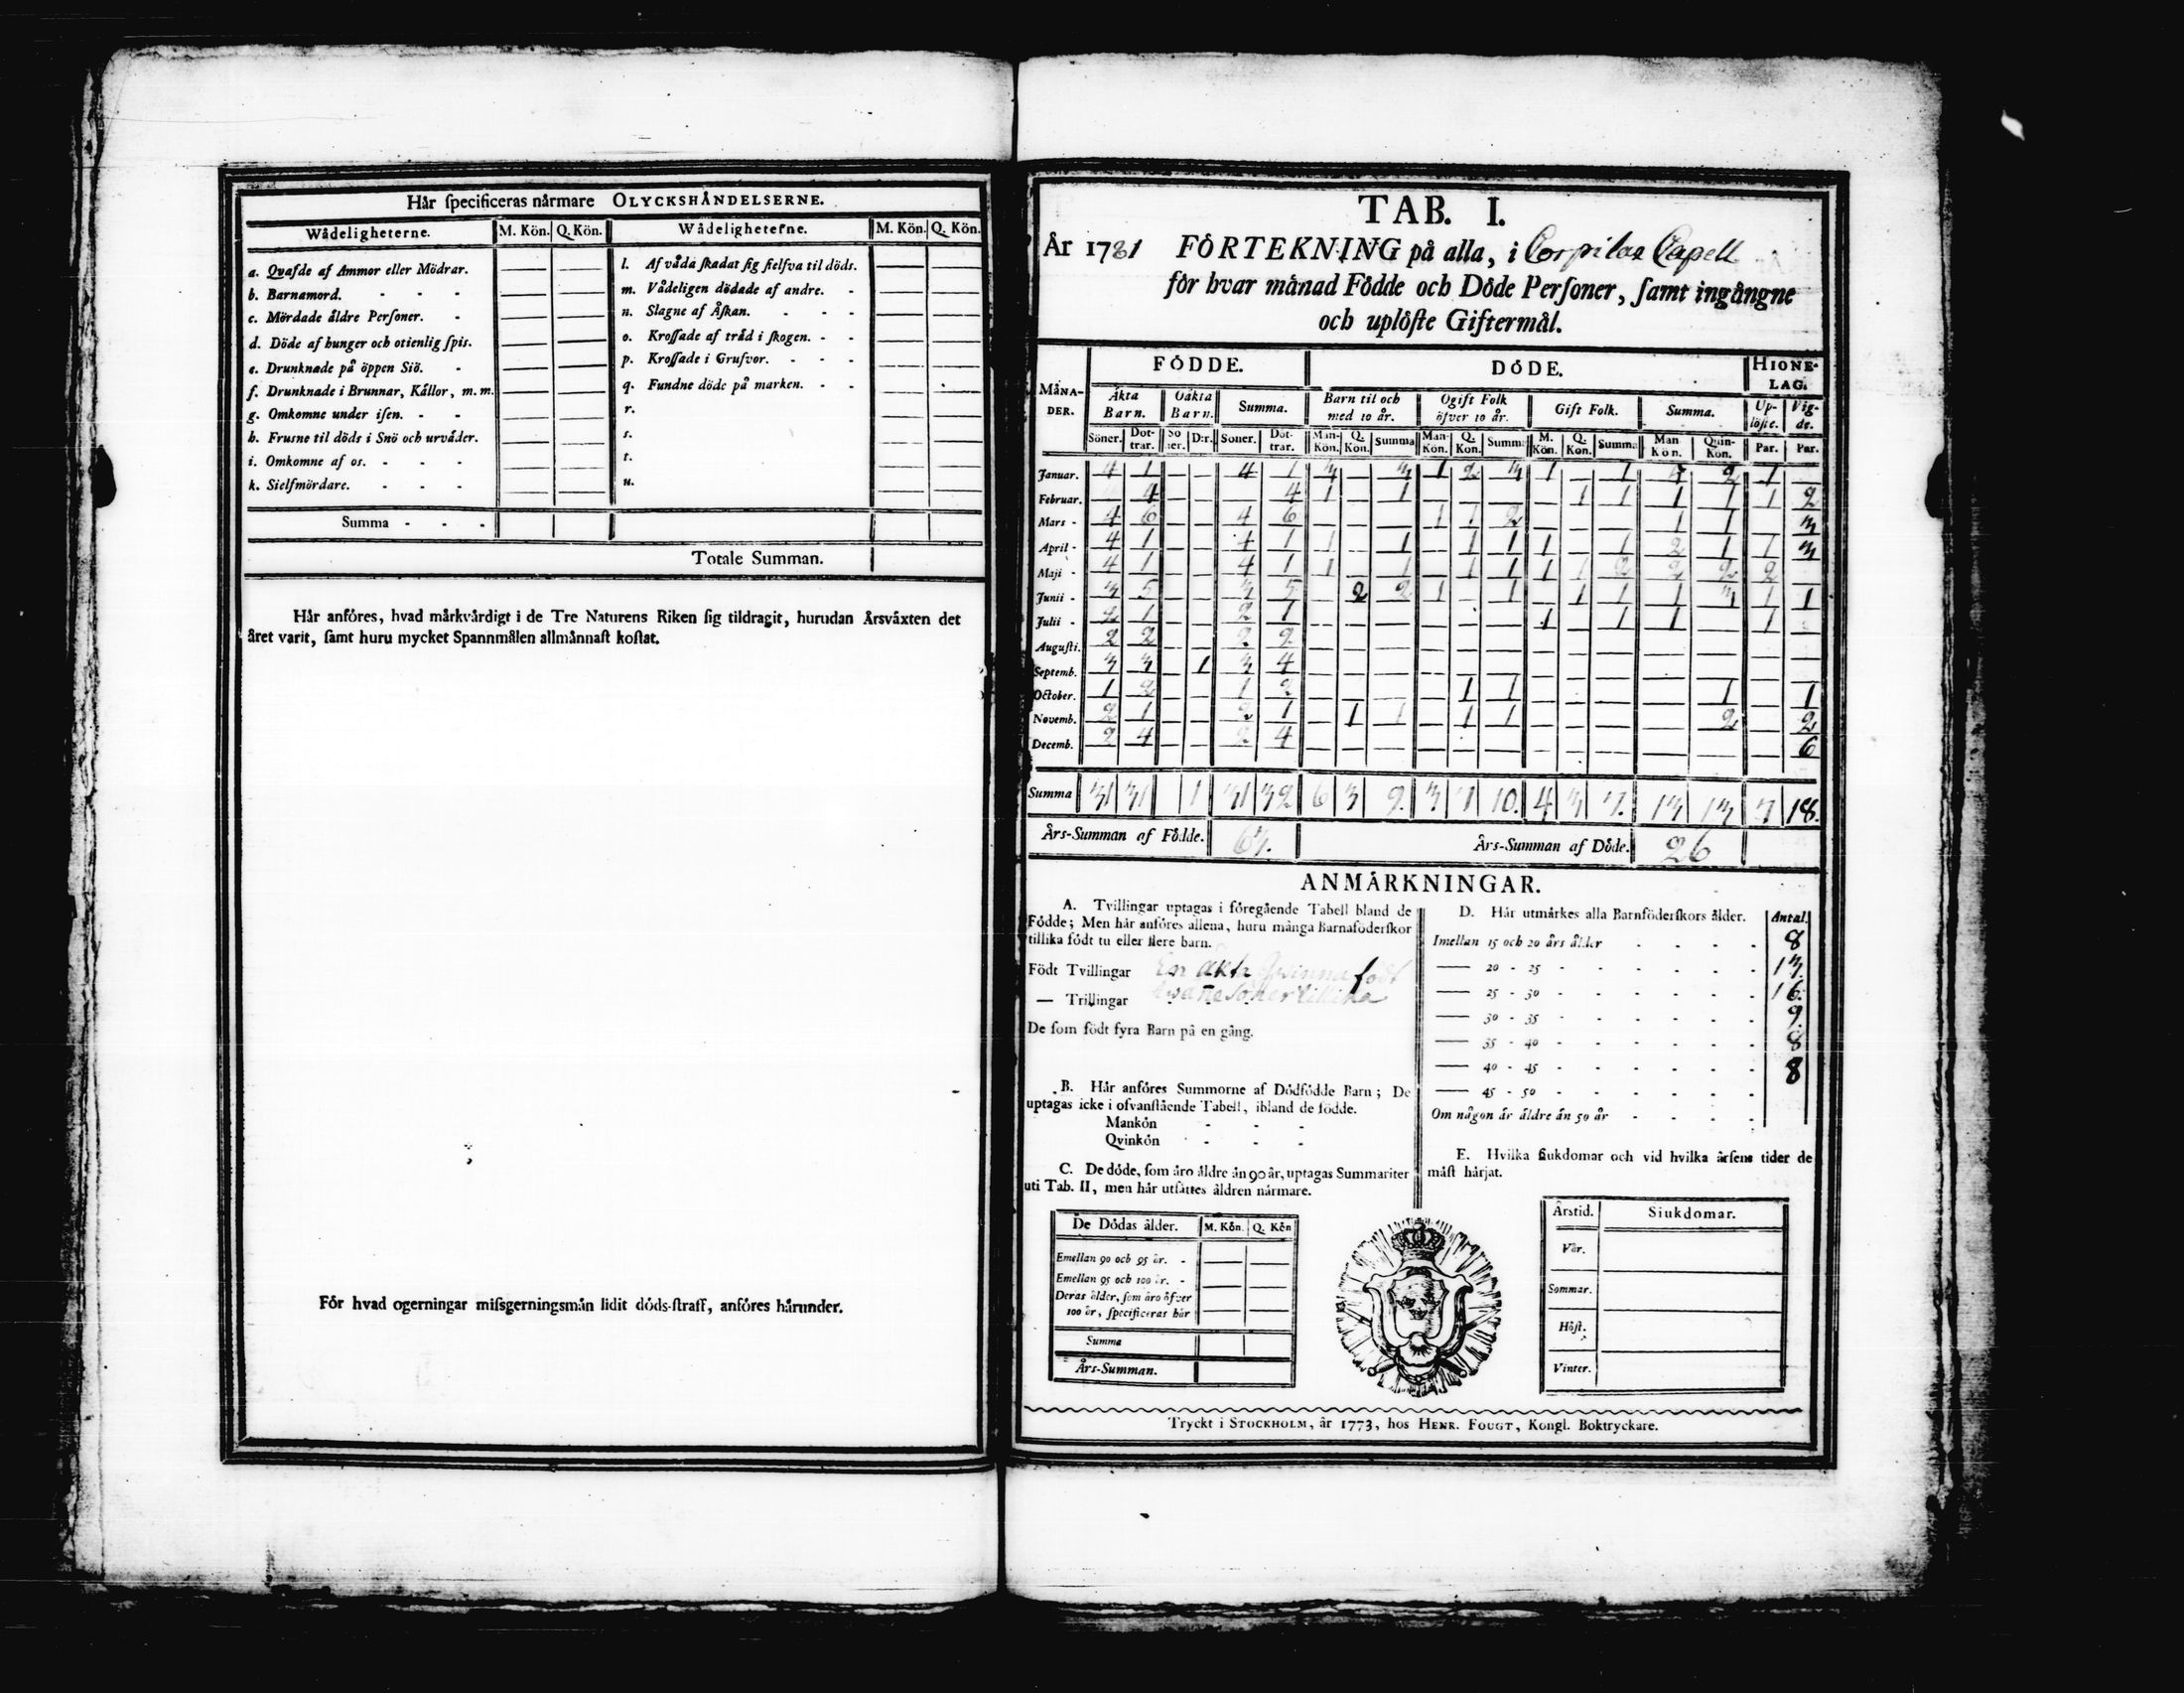 Hår ſpecificeras nårmare OLYCKSHÅNDELSERNE.
Wådeligheterne. M. Kön. Q. Kön. Wådeligheterne. M. Kön. Q. Kön.
a. Qvafde af Ammor eller Mödrar. — — l. Af våda ſkadat ſig ſielfva til döds. — —
b. Barnamord. - - - — — m. Vådeligen dödade af andre. - — —
c. Mördade åldre Perſoner. - — — n. Slagne af Åſkan. - - - — —
d. Döde af hunger och otienlig ſpis. — — o. Kroſſade af tråd i ſkogen. - - — —
e. Drunknade på öppen Siö. - — — p. Kroſſade i Grufvor. - - - — —
f. Drunknade i Brunnar, Kållor, m. m. — — q. Fundne döde på marken. - - — —
g. Omkomne under iſen. - - — — r. — —
h. Frusne til döds i Snö och urvåder. — — s. — —
i. Omkomne af os. - - - — — t. — —
k. Sielfmördare. - - - — — u. — —
Summa - - -
Totale Summan.
Hår anföres, hvad mårkvårdigt i de Tre Naturens Riken ſig tildragit, hurudan Årsvåxten det
året varit, ſamt huru mycket Spannmålen allmånnaſt koſtat.
För hvad ogerningar miſsgerningsmån lidit döds-ſtraff, anföres hårunder.
TAB. I.
År 1781 FÖRTEKNING på alla, i Corpilax Capell
för hvar månad Födde och Döde Perſoner, ſamt ingångne
och uplöſte Giftermål.
MÅNA-DER. FÖDDE. DÖDE. HIONE-LAG.
Äkta Barn. Oäkta Barn. Summa. Barn til och med 10 år. Ogift Folk öfver 10 år. Gift Folk. Summa. Up-löſte. Vig-de.
Söner. Döt-trar. Sö ner. D:r. Söner. Döt-trar. Man-Kön. Q. Kön. Summa Man-Kön. Q. Kön. Summa M. Kön. Q. Kön. Summa Man Kön. Quin-Kön. Par. Par.
Januar. 4 1 — — 4 1 3 — 3 1 2 3 1 — 1 5 2 1 —
Februar. — 4 — — — 4 1 — 1 — — — — 1 1 1 1 1 2
Mars - 4 6 — — 4 6 — — — 1 1 2 — — — 1 1 — 3
April - 4 1 — — 4 1 1 — 1 — 1 1 1 — 1 2 1 1 3
Maji - 4 1 — — 4 1 1 — 1 — 1 1 1 1 2 2 2 2 —
Junii - 3 5 — — 3 5 — 2 2 1 — 1 — 1 1 1 3 1 1
Julii - 2 1 — — 2 1 — — — — — — 1 — 1 1 — 1
Auguſti. 2 2 — — 2 2 — — — — — — — — — — — — —
Septemb. 3 3 — 1 3 4 — — — — — — — — — — — — —
October. 1 2 — — 1 2 — — — — 1 1 — — — — 1 — 1
Novemb. 2 1 — — 2 1 — 1 1 — 1 1 — — — — 2 — 2
Decemb. 2 4 — — 2 4 — — — — — — — — — — — — 6
Summa 31 31 1 31 32 6 3 9. 3 7 10. 4 3 7. 13 13 7 18.
Års-Summan af Födde. 63. Års-Summan af Döde. 26
ANMÄRKNINGAR.
A. Tvillingar uptagas i föregående Tabell bland de
Födde; Men hår anföres allena, huru många Barnaföderſkor
tillika födt tu eller flere barn.
Födt Tvillingar En äkta Qvinna födt
— Trillingar tvänne Söner tillika
De ſom födt fyra Barn på en gång.
B. Hår anföres Summorne af Dödfödde Barn; De
uptagas icke i ofvanſtående Tabell, ibland de födde.
Mankön - - -
Qvinkön - - -
C. De döde, ſom äro åldre ån 90 år, uptagas Summariter
uti Tab. II, men hår utſåttes åldren nårmare.
De Dödas ålder. M. Kön. Q. Kön
Emellan 90 och 95 år. - — —
Emellan 95 och 100 år. - — —
Deras ålder, ſom äro öfver — —
100 år, ſpecificeras hår — —
Summa
Års-Summan.
D. Hår utmårkes alla Barnföderſkors ålder. Antal.
Imellan 15 och 20 års ålder - - - - 8
— 20 - 25 - - - - - - 13.
— 25 - 30 - - - - - - 16.
— 30 - 35 - - - - - - 9.
— 35 - 40 - - - - - - 8
— 40 - 45 - - - - - - 8
— 45 - 50 - - - - - -
Om någon är åldre än 50 år - - - -
E. Hvilka ſiukdomar och vid hvilka årſens tider de
måſt hårjat.
Årstid. Siukdomar.
Vår.
Sommar.
Höſt.
Vinter.
Tryckt i STOCKHOLM, år 1773, hos HENR. FOUGT, Kongl. Boktryckare.